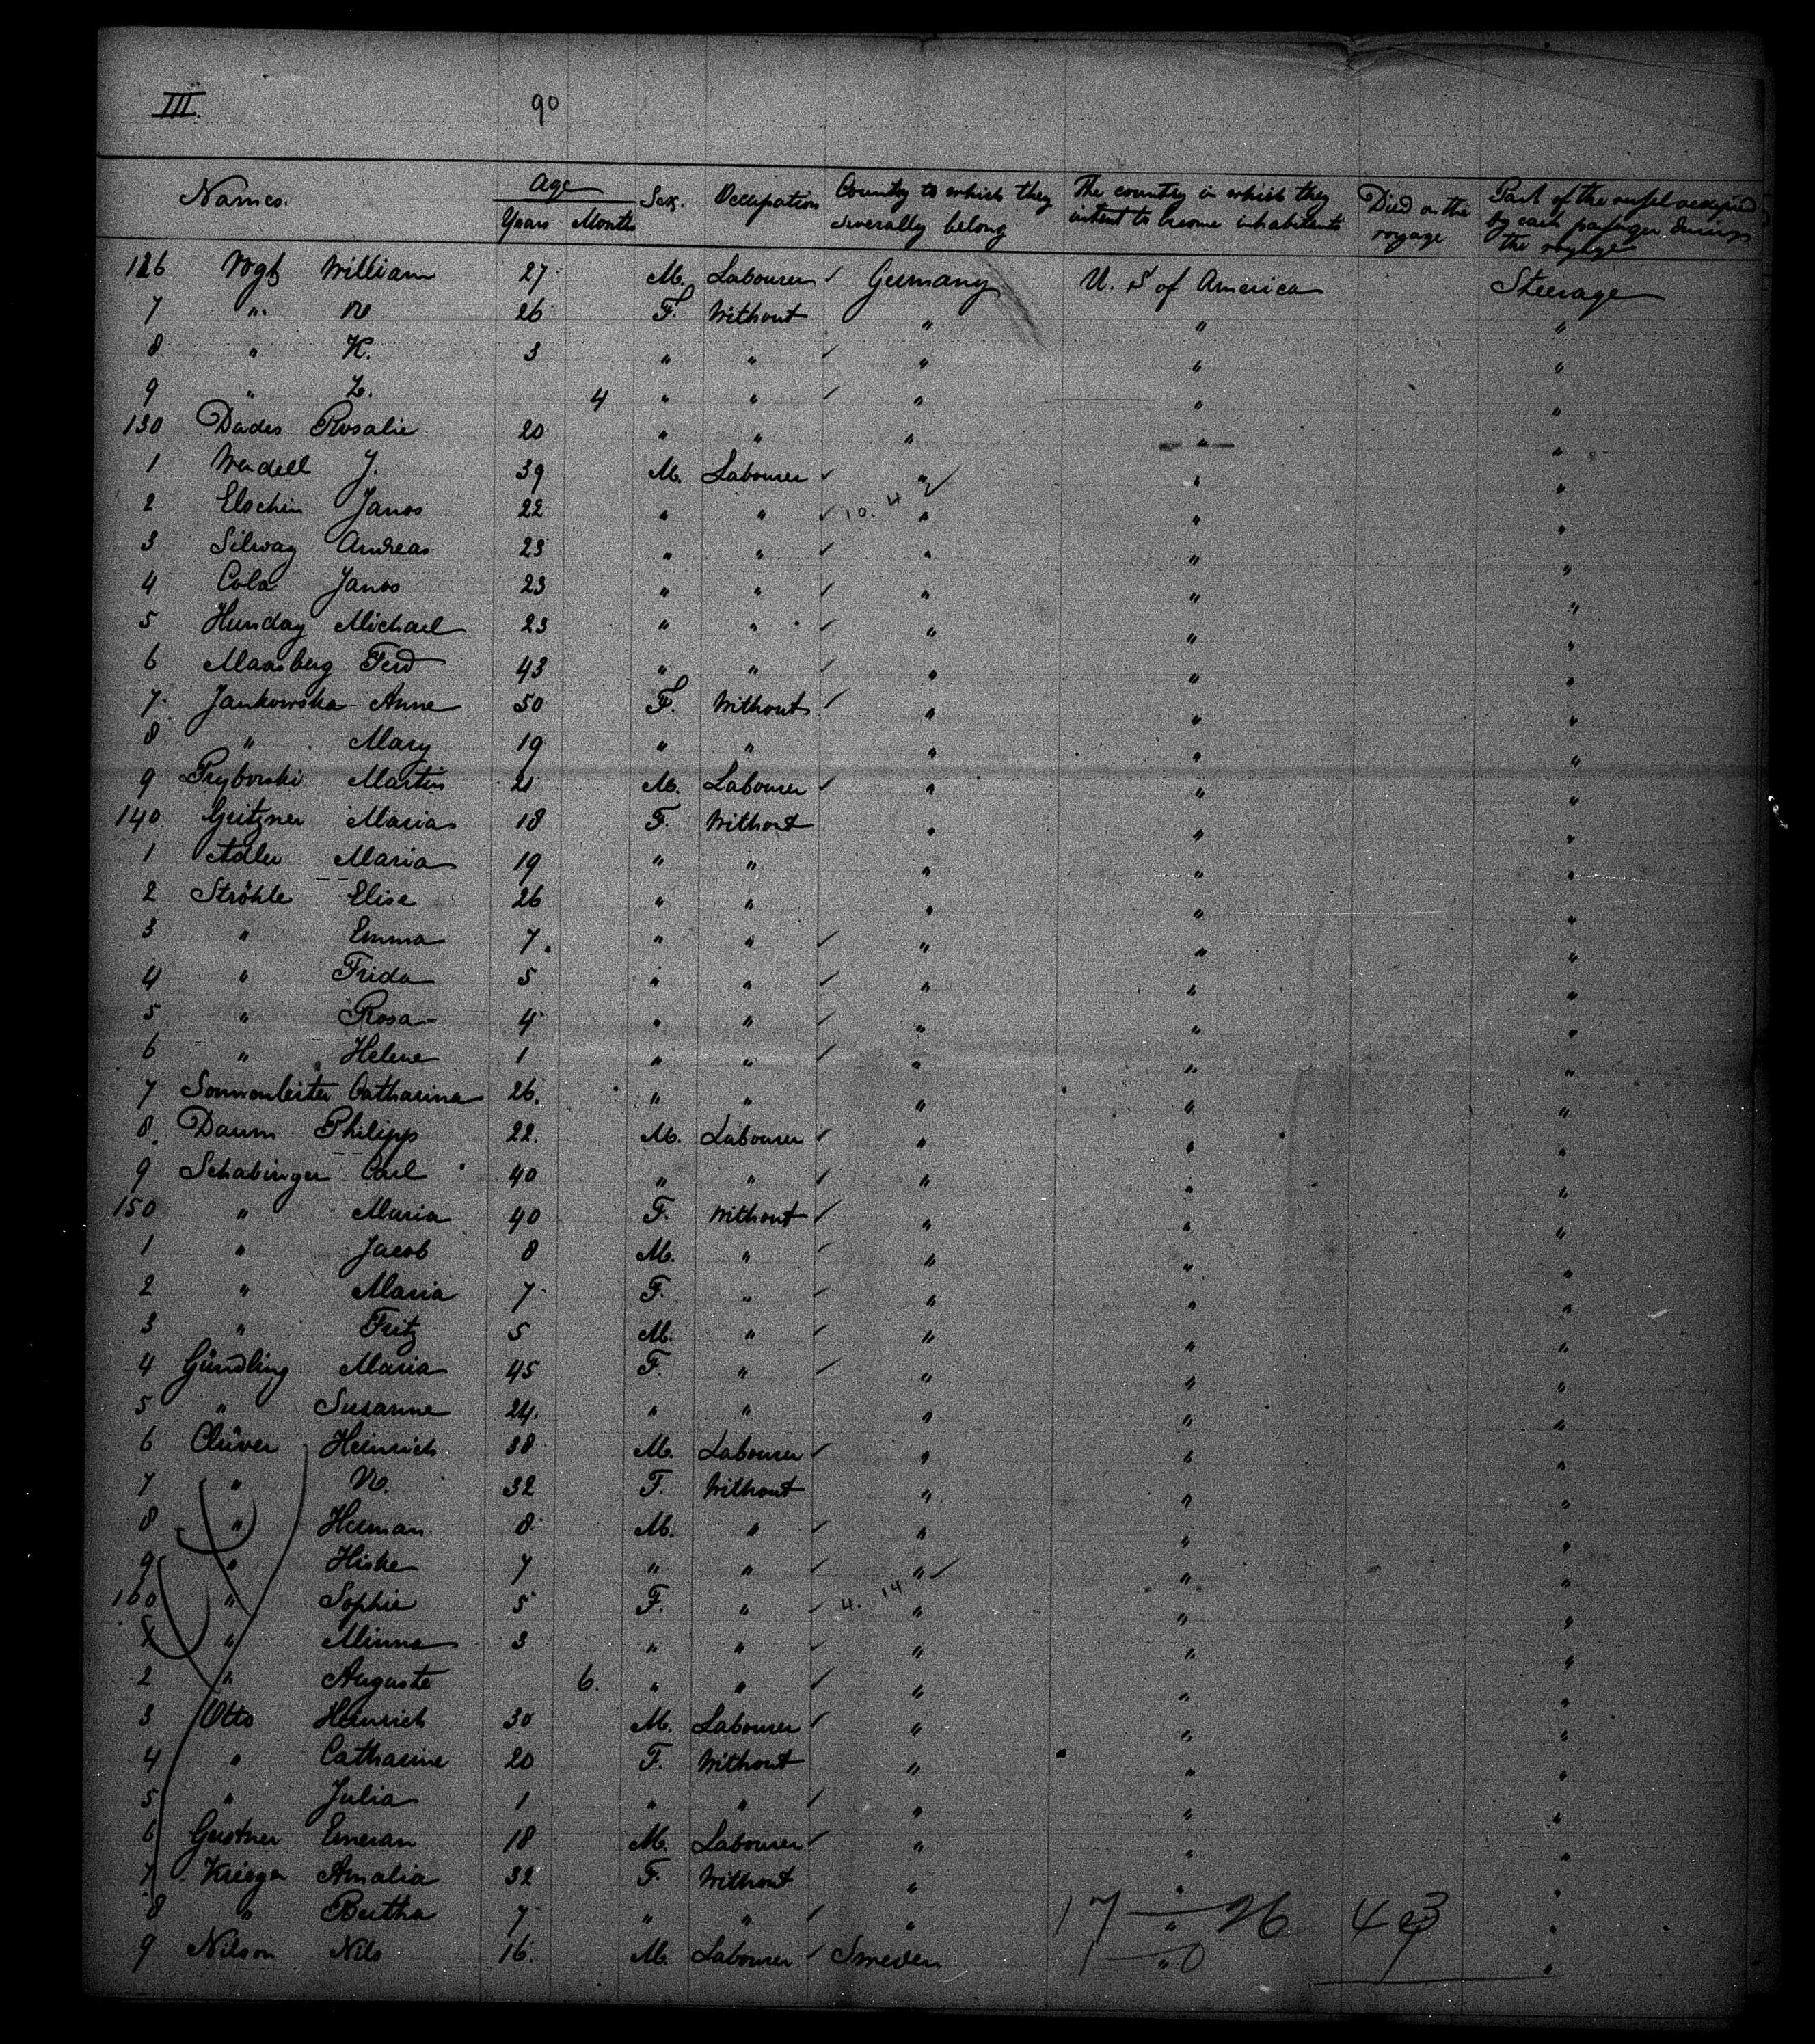 III. 90
Names. Age Years Months Sex. Occupation Country to which they severally belong The country in which they intent to become inhabitants Died on the voyage Part of the vessel occupied by each passenger during the voyage
126 Vogt William 27 M. Labourer Germany U. S of America Steerage
7 " 26 F. Without " " "
8 " K. 3 " " " " "
9 " 4 " " " " "
130 Dades Rosalie 20 " " " " "
1 Wendell J. 39 M. Labourer " " "
2 Elschin Janos 22 " " 10. 4 " " "
3 Silway Andreas 23 " " " " "
4 Cola Janos 23 " " " " "
5 Hunday Michael 23 " " " " "
6 Maasberg Ferd 43 " " " " "
7 Jankowska Anne 50 F. Without " " "
8 " Mary 19 " " " " "
9 Pryborski Martin 21 M. Labourer " " "
140 Gritzner Maria 18 F. Without " " "
1 Adler Maria 19 " " " " "
2 Ströhle Elise 26 " " " " "
3 " Emma 7 " " " " "
4 " Frida 5 " " " " "
5 " Rosa 4 " " " " "
6 " Helene 1 " " " " "
7 Sonnenleiter Catharina 26. " " " " "
8 Daum Philipp 22. M. Labourer " " "
9 Schabinger Carl 40 " " " " "
150 " Maria 40 F. Without " " "
1 " Jacob 8 M. " " " "
2 " Maria 7 F. " " " "
3 " Fritz 5 M. " " " "
4 Gündling Maria 45 F. " " " "
5 " Susanne 24. " " " " "
6 Clüver Heinrich 38 M. Labourer " " "
7 " 32 F. Without " " "
8 " Herman 8 M. " " " "
9 " Hiske 7 " " " " "
160 " Sophie 5 F. " 4. 14 " " "
1 " Minna 3 " " " " "
2 " Auguste 6. " " " " "
3 Otto Heinrich 30 M. Labourer " " "
4 " Catharine 20 F. Without " " "
5 " Julia 1 " " " " "
6 Gerstner Emeran 18 M. Labourer " " "
7 Krieger Amalia 32 F. Without " " "
8 " Bertha 7 " " " 17 — 26 43 " "
9 Nilson Nils 16. M. Labourer Sweden 1 — 0 " "